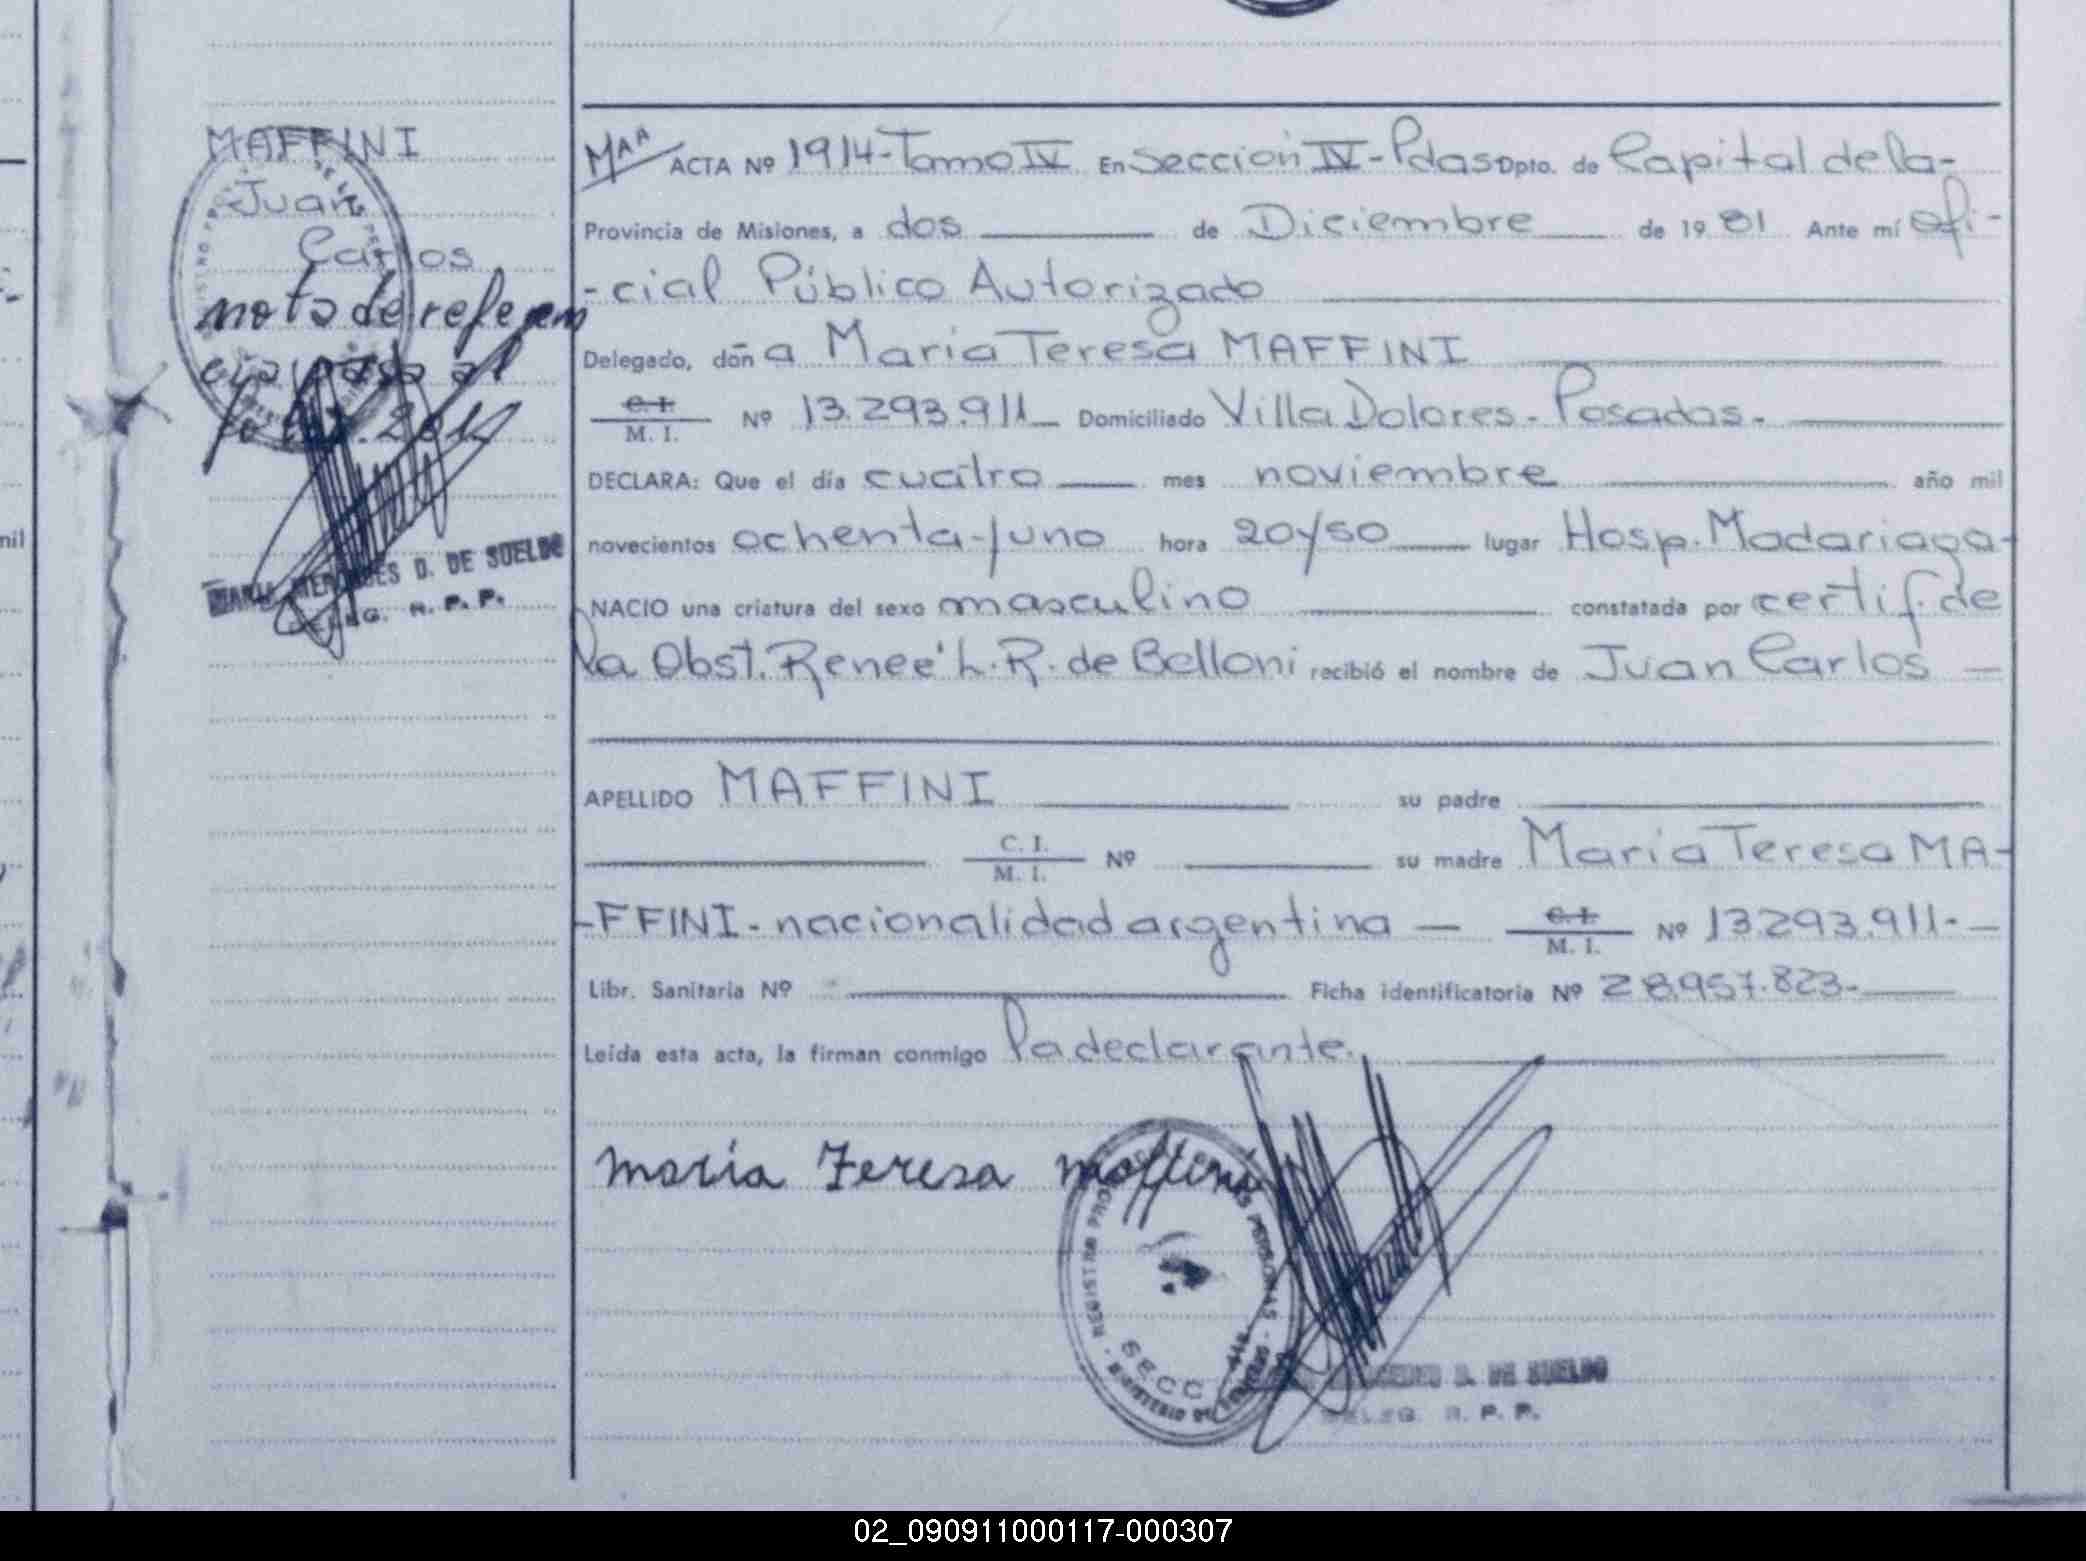 MAFFINI
Juan
Carlos
nota de referen
cia pasa al
MARIA MERCEDES D. DE SUELDO
DELEG. R. P. P.
Maa ACTA Nº 1914-Tomo IV En Sección IV-Pdas Dpto. de Capital de la-
Provincia de Misiones, a dos de Diciembre de 19 81 Ante mí ofi-
-cial Público Autorizado
Delegado, doña María Teresa MAFFINI
C. I. / M. I. Nº 13.293.911 Domiciliado Villa Dolores - Posadas.-
DECLARA: Que el día cuatro mes noviembre año mil
novecientos ochenta y uno hora 20y50 lugar Hosp. Madariaga-
NACIO una criatura del sexo masculino constatada por certif. de
la Obst. Reneé L. R. de Belloni recibió el nombre de Juan Carlos —
APELLIDO MAFFINI su padre
C. I. / M. I. Nº su madre María Teresa MA-
-FFINI - nacionalidad argentina — C. I. / M. I. Nº 13.293.911.-
Libr. Sanitaria Nº Ficha identificatoria Nº 28.957.823-
Leída esta acta, la firman conmigo la declarante.
maria Teresa maffini
REGISTRO PROV. DE LAS PERSONAS
SECC
D. DE SUELDO
DELEG. R. P. P.
02_090911000117-000307